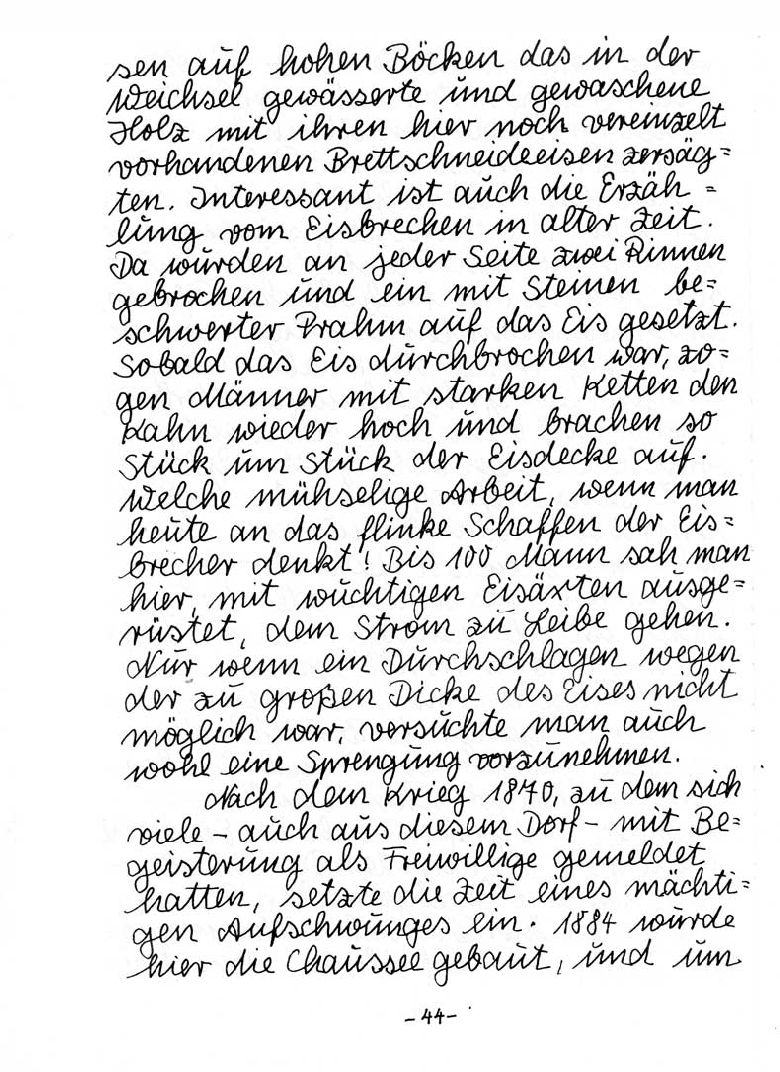 sen auf hohen Böcken das in der
Weichsel gewässerte und gewaschene
Holz mit ihren hier noch vereinzelt
vorhandenen Brettschneideeisen zersäg=
ten. Interessant ist auch die Erzäh=
lung vom Eisbrechen in alter Zeit.
Da wurden an jeder Seite zwei Rinnen
gebrochen und ein mit Steinen be=
schwerter Prahm auf das Eis gesetzt.
Sobald das Eis durchbrochen war, zo=
gen Männer mit starken Ketten den
Kahn wieder hoch und brachen so
Stück um Stück der Eisdecke auf.
Welche mühselige Arbeit, wenn man
heute an das flinke Schaffen der Eis=
brecher denkt! Bis 100 Mann sah man
hier, mit wuchtigen Eisäxten ausge=
rüstet, dem Strom zu Leibe gehen.
Nur wenn ein Durchschlagen wegen
der zu großen Dicke des Eises nicht
möglich war, versuchte man auch
wohl eine Sprengung vorzunehmen.
Nach dem Krieg 1870, zu dem sich
viele - auch aus diesem Dorf - mit Be=
geisterung als Freiwillige gemeldet
hatten, setzte die Zeit eines mächti=
gen Aufschwunges ein. 1884 wurde
hier die Chaussee gebaut, und um
-44-